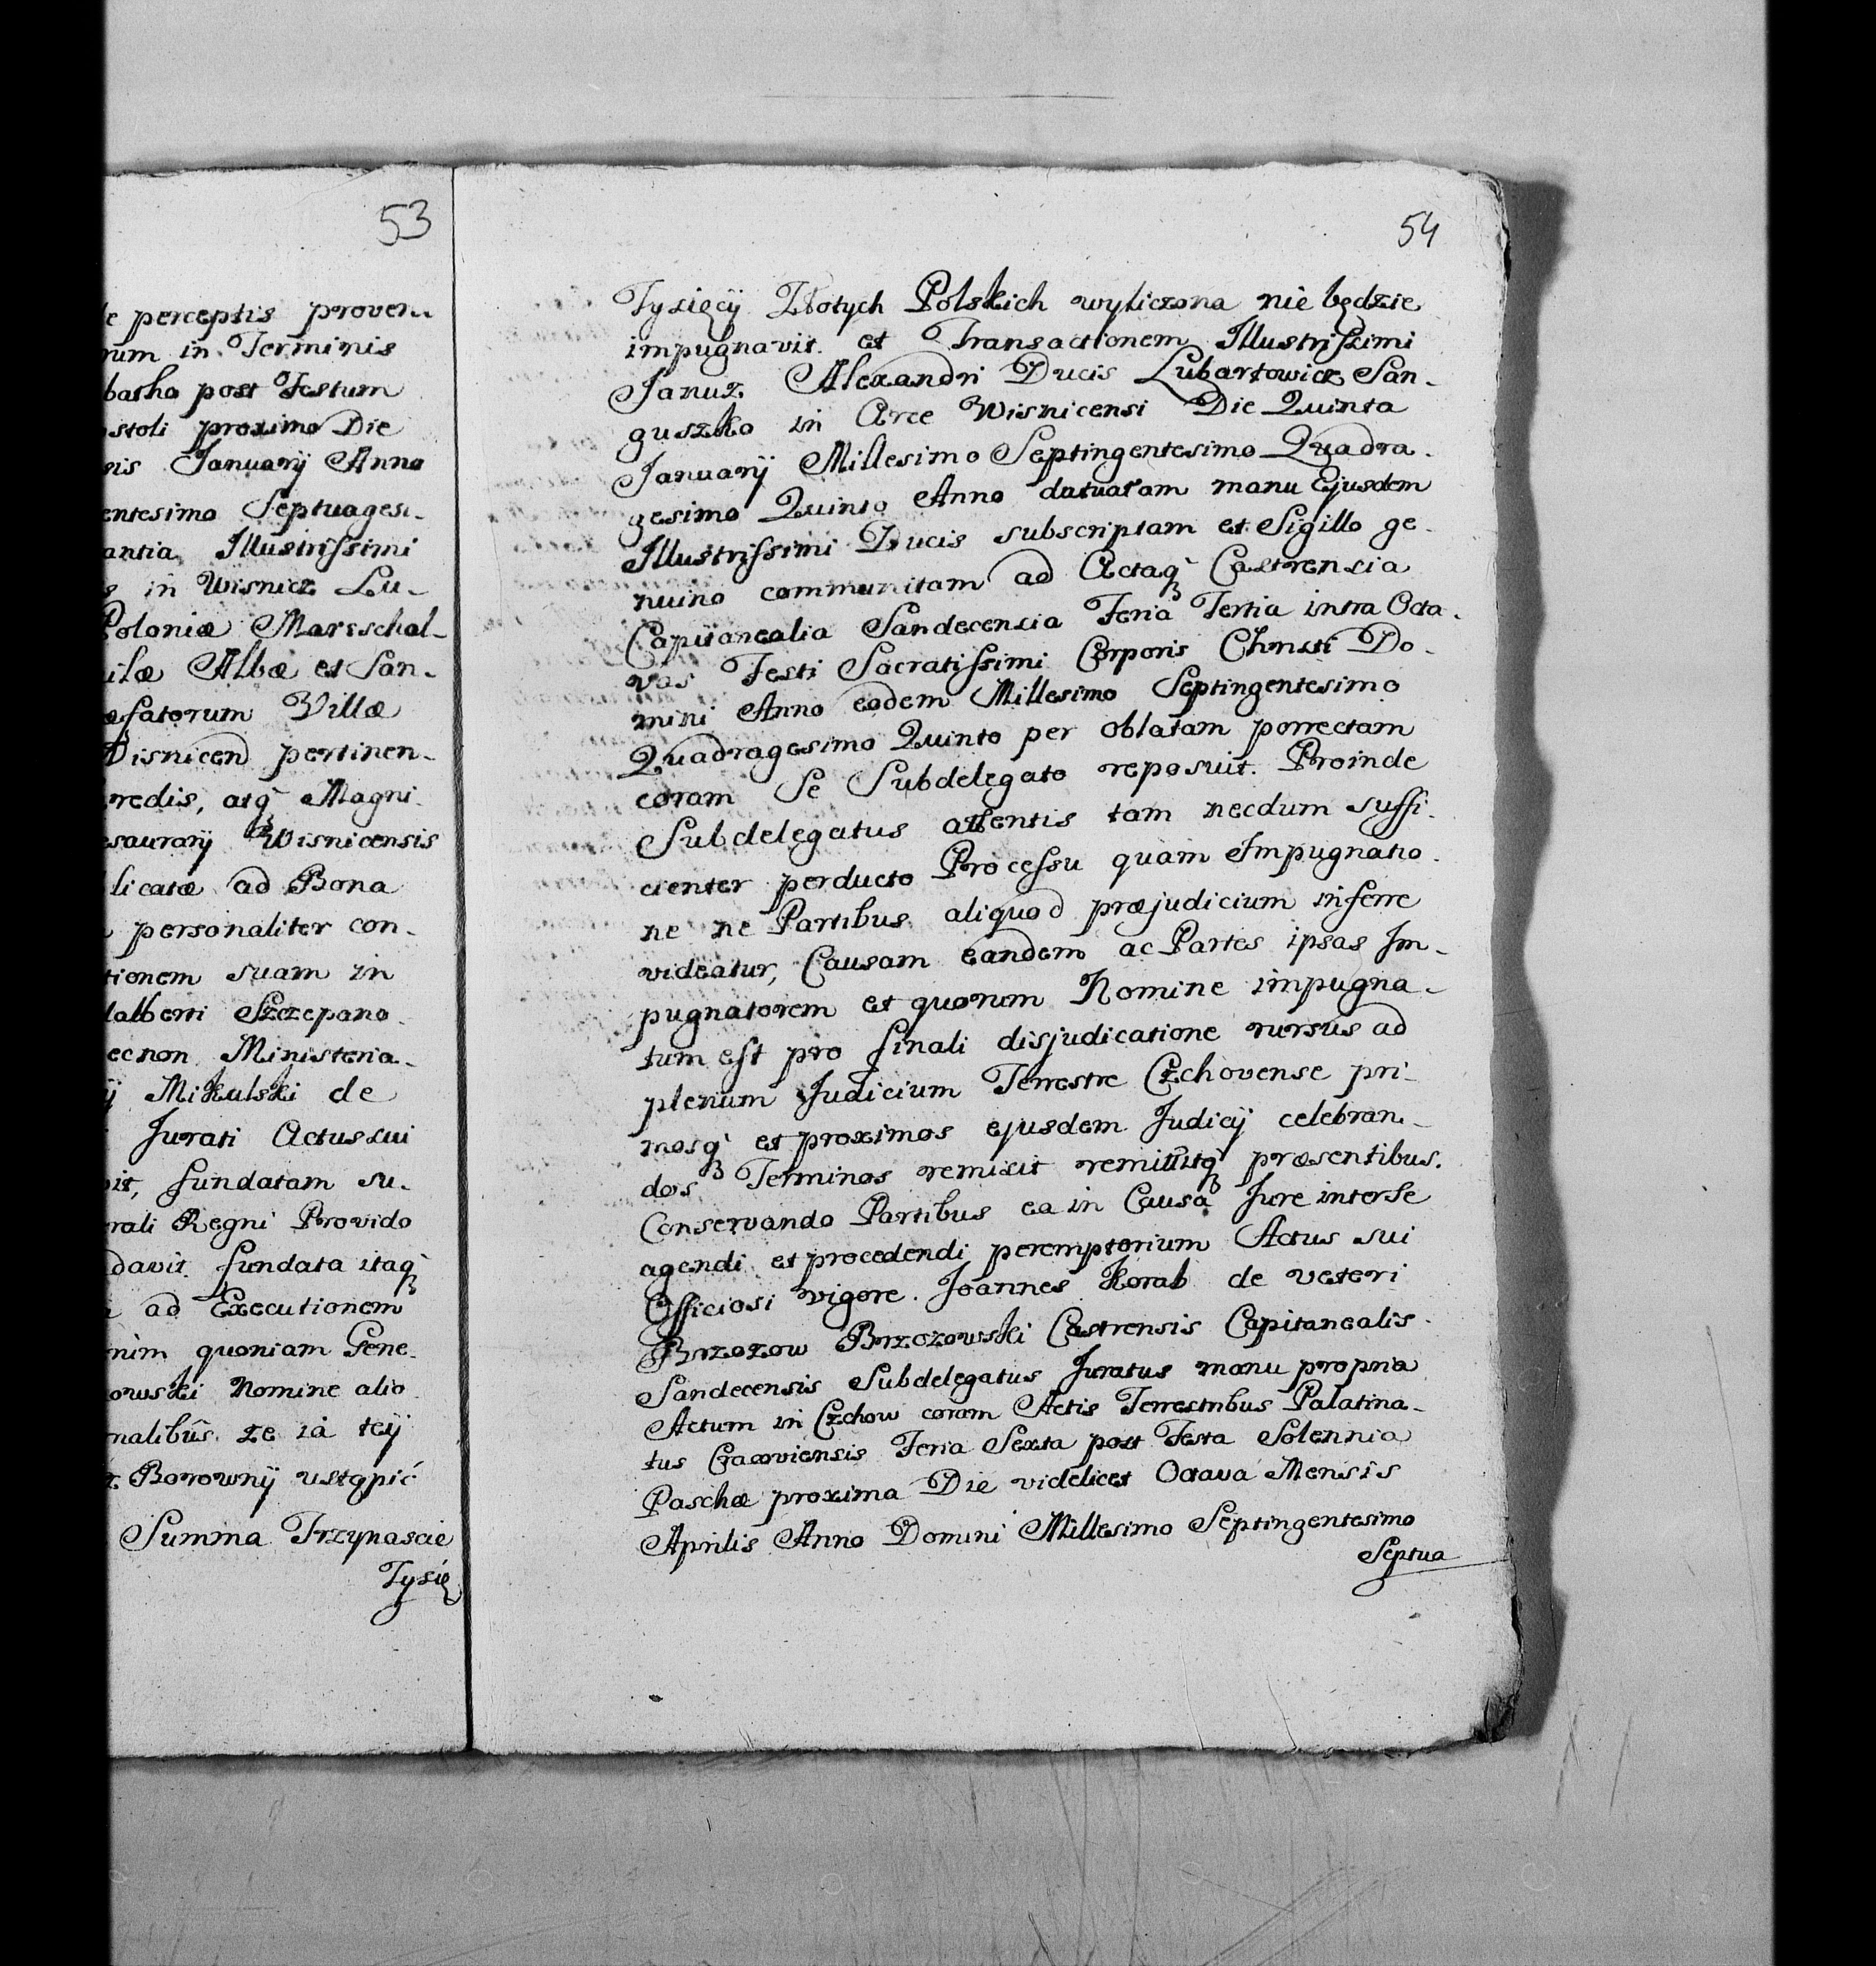 53
perceptis proven
in Terminis
post Festum
proximo Die
Januarij Anno
Septuagesi-
Illustrissimi
in Wisnicz Lu-
Poloniæ Marschal-
Albæ et San-
Villæ
pertinen-
atq Magni
Wisnicensis
ad Bona
personaliter con-
suam in
Szczepano
Ministeria-
Mikulski de
Jurati Actus sui
fundatam su-
Regni Provido
fundata itaq
ad Executionem
quoniam Gene-
Nomine alio
ze ia teÿ
Borownÿ ustąpić
Summa Trzynascie
Tysię
54
Tysięcÿ Złotych Polskich wyliczona nie będzie
impugnavit. et Transactionem Illustrissimi
Janus. Alexandri Ducis Lubartowicz San-
guszko in Arce Wisnicensi Die Quinta
Januarij Millesimo Septingentesimo Quadra-
gesimo Quinto Anno datuatam manu Ejusdem
Illustrissimi Ducis subscriptam et Sigillo ge-
nuino communitam ad Actaq Castrensia
Capitanealia Sandecensia Feria Tertia intra Octa-
vas Festi Sacratissimi Corporis Christi Do-
mini Anno eodem Millesimo Septingentesimo
Quadragesimo Quinto per oblatam porrectam
coram Se Subdelegato reposuit. Proinde
Subdelegatus attentis tam necdum suffi-
cienter perducto Processu quam Impugnatio-
ne ne Partibus aliquod præjudicium inferre
videatur, Causam eandem ac Partes ipsas Im-
pugnatorem et quorum Nomine impugna-
tum est pro finali disjudicatione rursus ad
plenum Judicium Terrestre Czchovense pri-
mosq et proximos ejusdem Judicij celebran-
dos Terminos remisit remittitq præsentibus.
Conservando Partibus ea in Causa Jure inter Se
agendi et procedendi peremptorium Actus sui
Officiosi vigore. Joannes Korab de veteri
Brzozow Brzozowski Castrensis Capitanealis
Sandecensis Subdelegatus Juratus manu propria
Actum in Czchow coram Actis Terrestribus Palatina-
tus Cracoviensis Feria Sexta post Festa Solennia
Paschæ proxima Die videlicet Octava Mensis
Aprilis Anno Domini Millesimo Septingentesimo
Septua